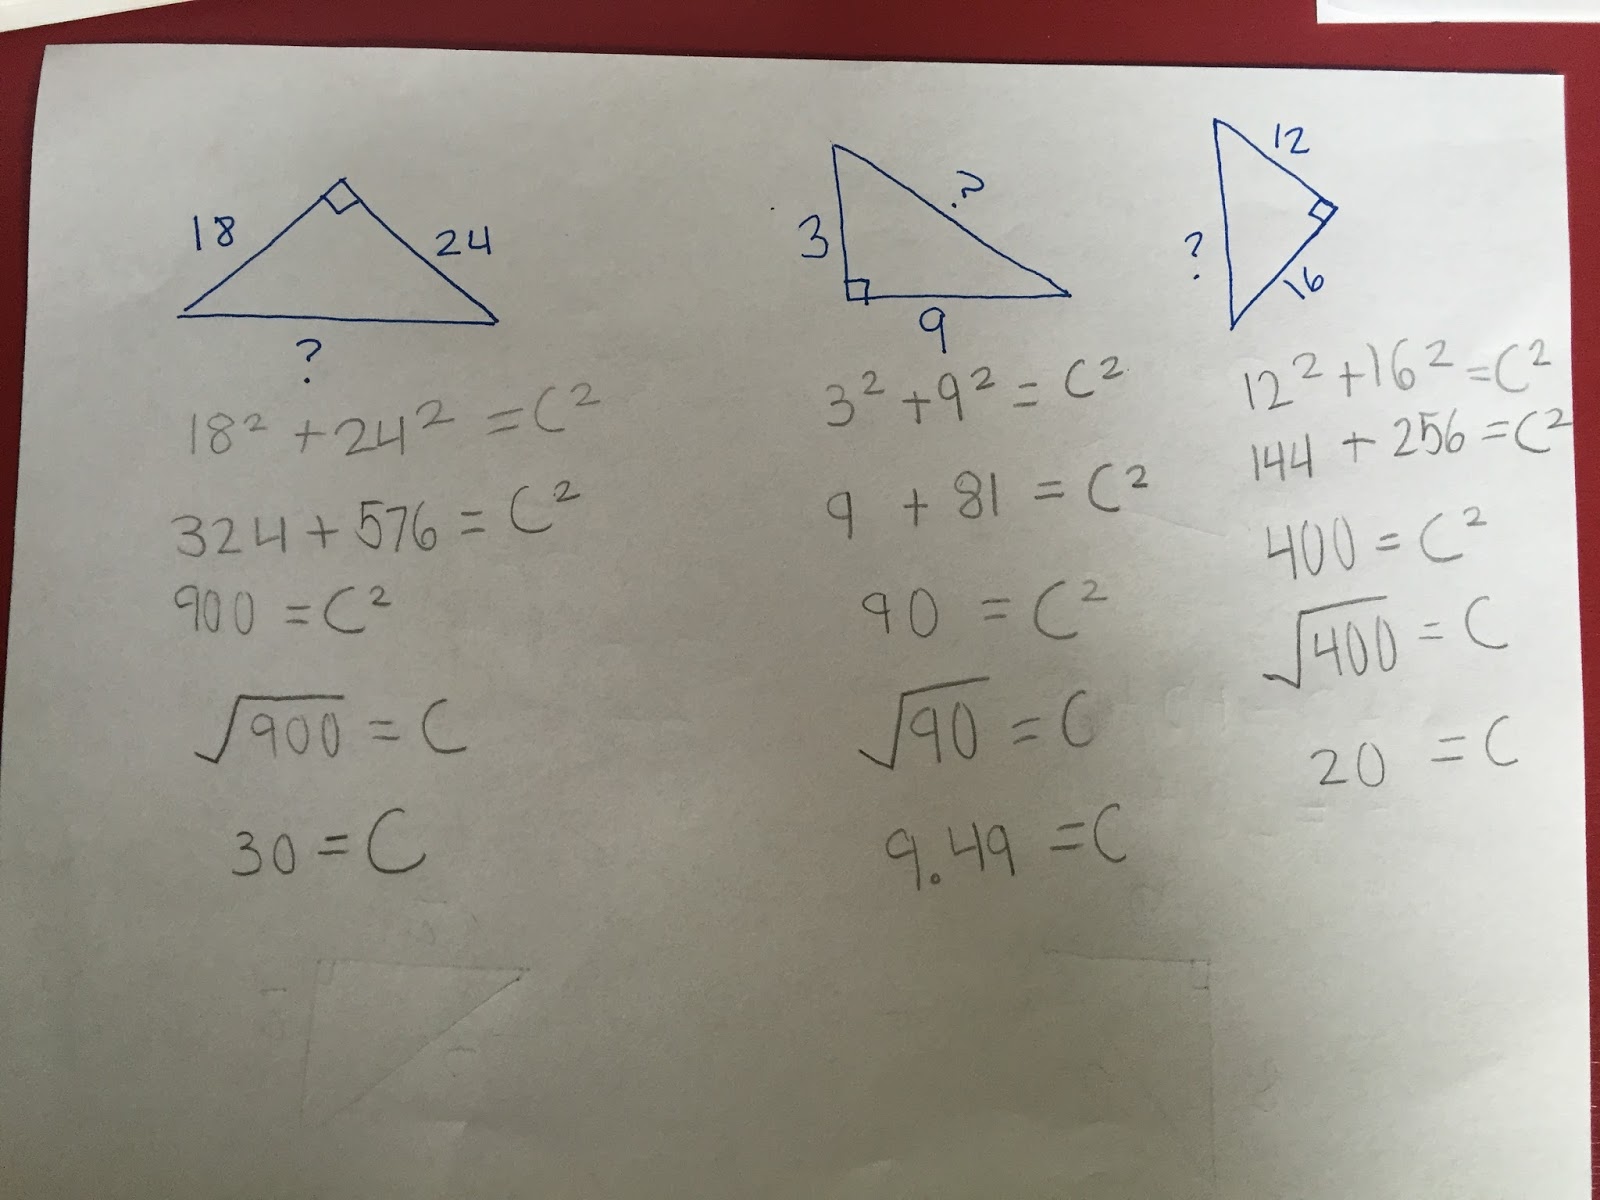 18
24
?
18² + 24² = C²
324 + 576 = C²
900 = C²
√900 = C
30 = C
3
?
9
3² + 9² = C²
9 + 81 = C²
90 = C²
√90 = C
9.49 = C
12
?
16
12² + 16² = C²
144 + 256 = C²
400 = C²
√400 = C
20 = C